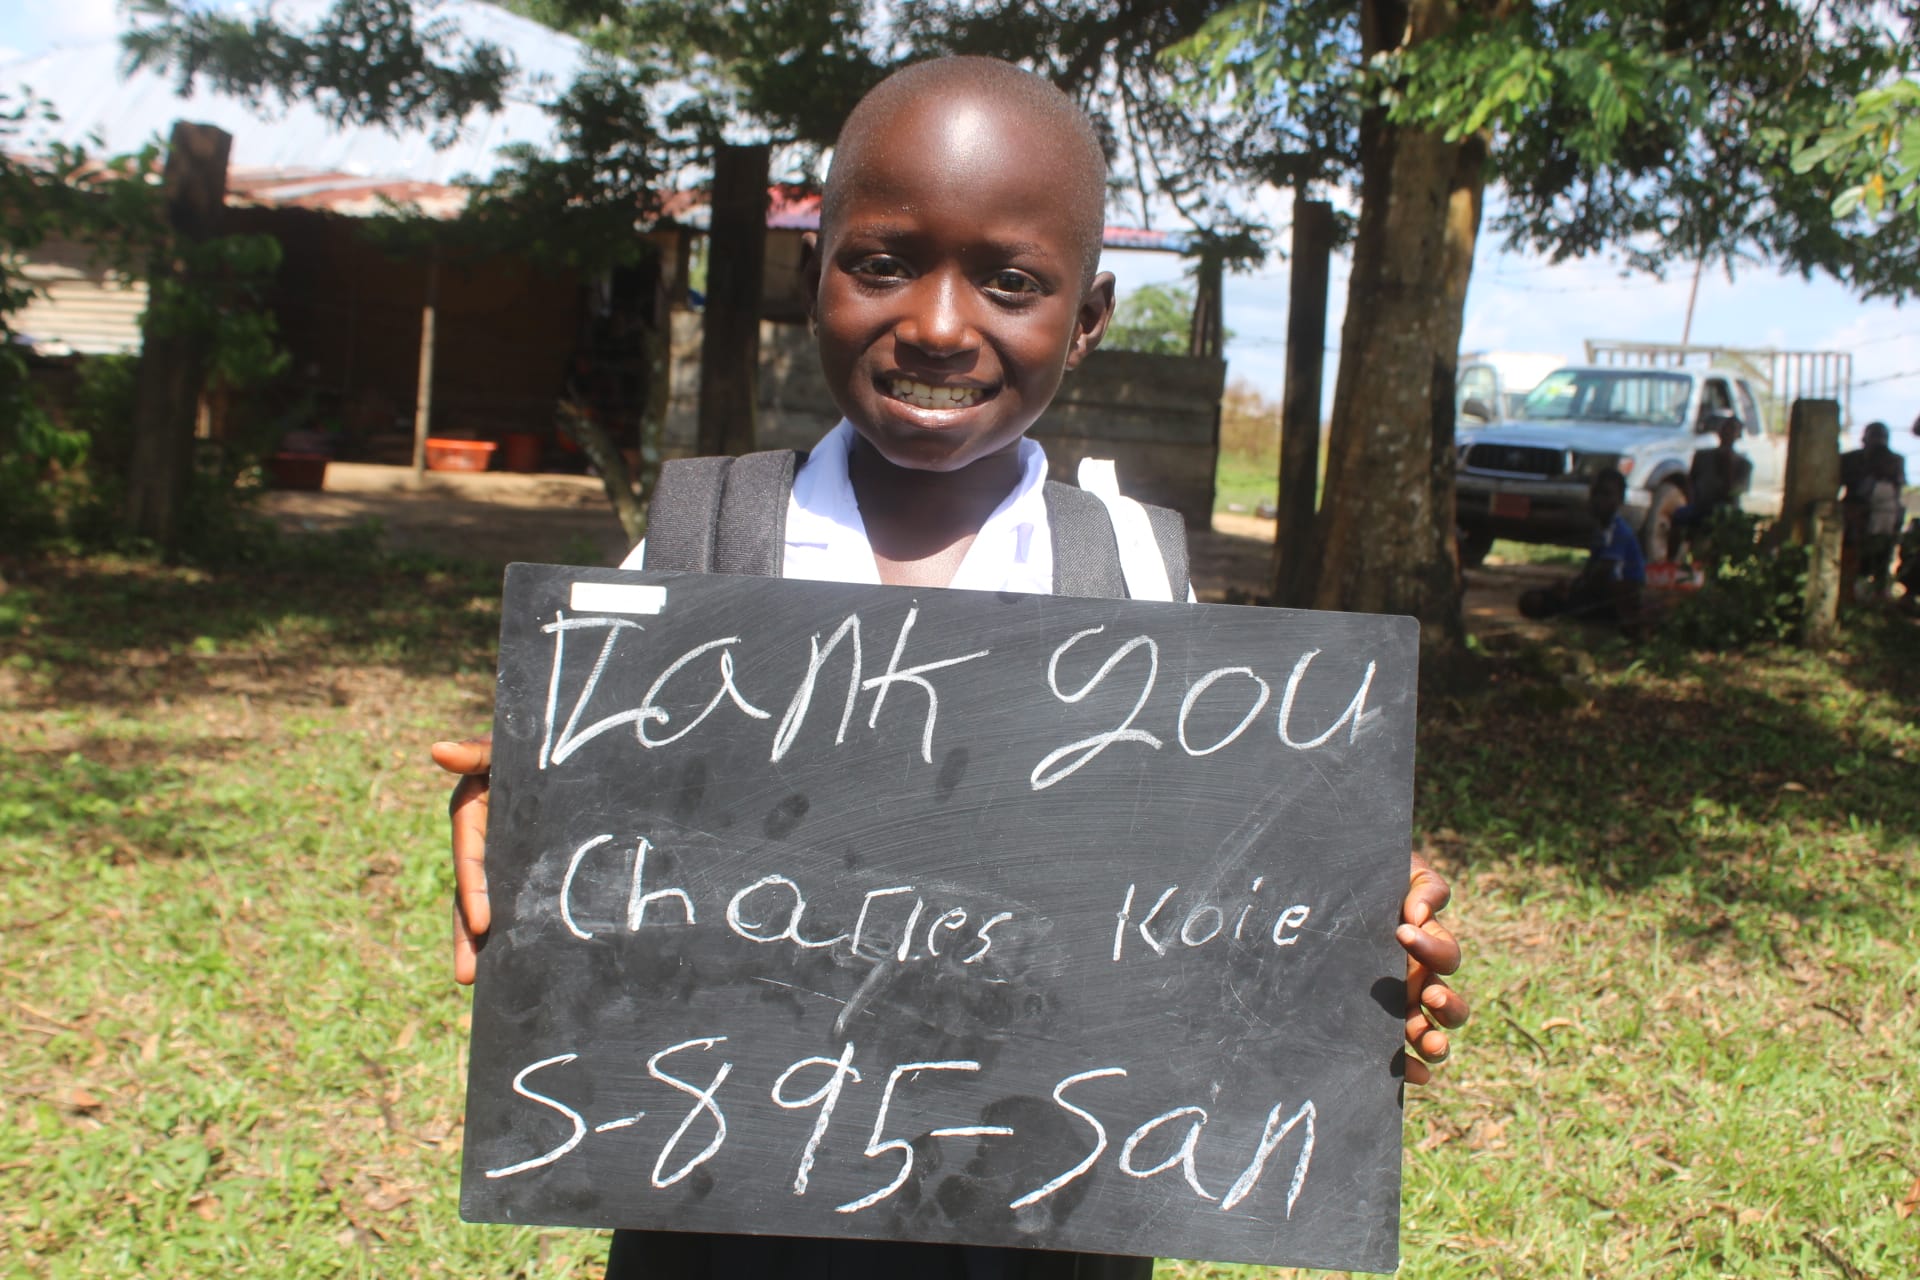 Thank you
Charles Koie
S-895-San